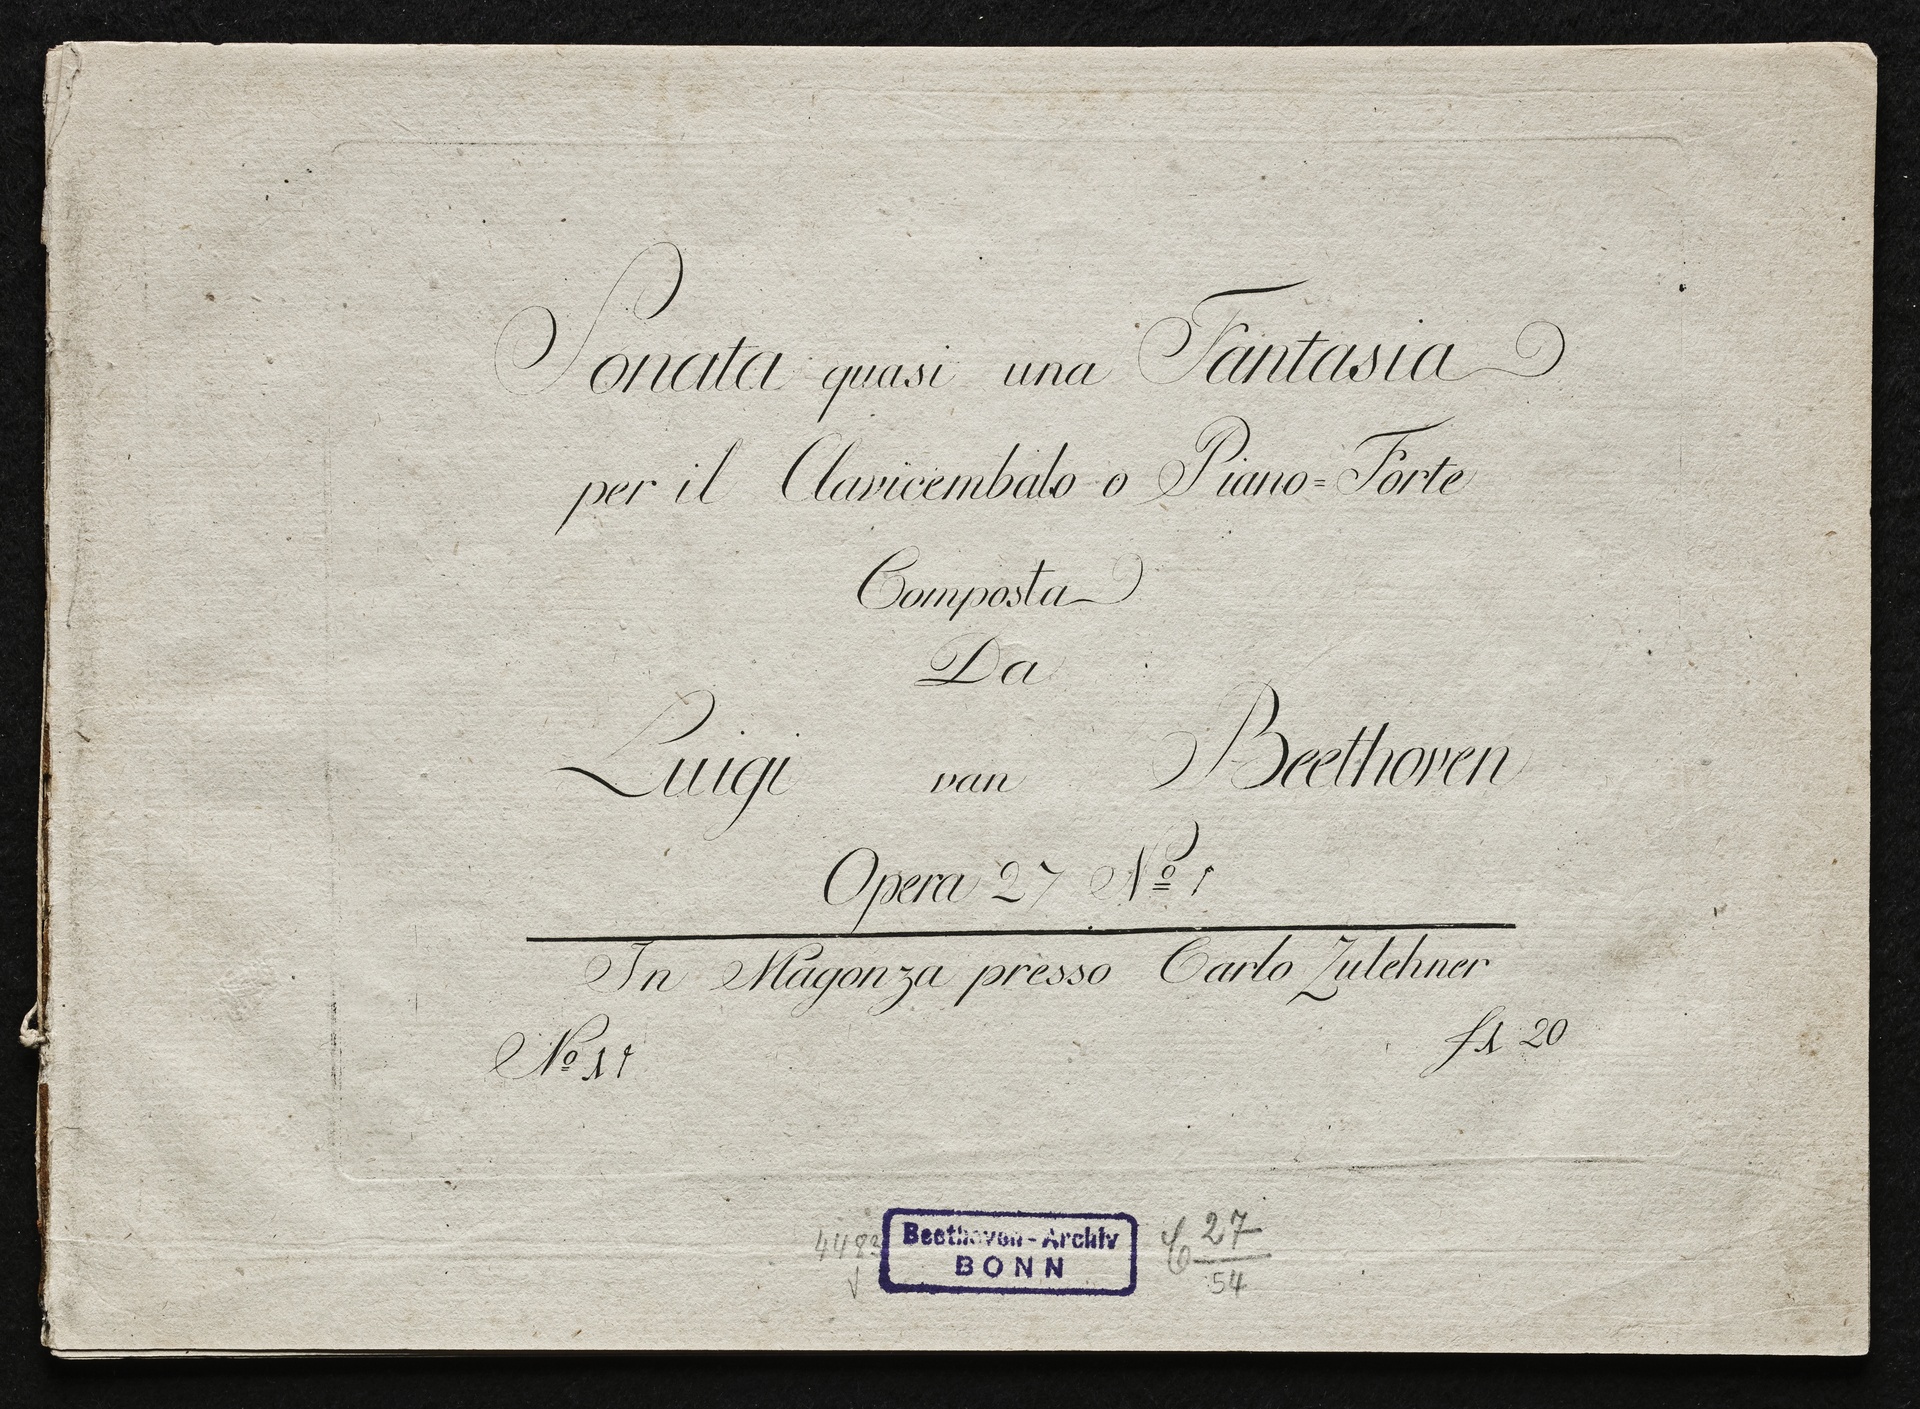 Sonata quasi una Fantasia
per il Clavicembalo o Piano=Forte
Composta
Da
Luigi van Beethoven
Opera 27 Nº 1
In Magonza presso Carlo Zulehner
Nº 11
f1 20
4483
Beethoven-Archiv
BONN
C 27
54